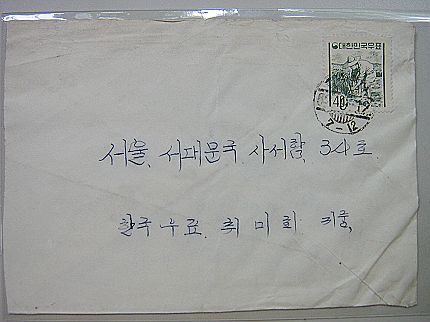 대한민국우표
40
7-12
서울, 서대문국 사서함, 34호.
한국 우표. 취미회 귀중,